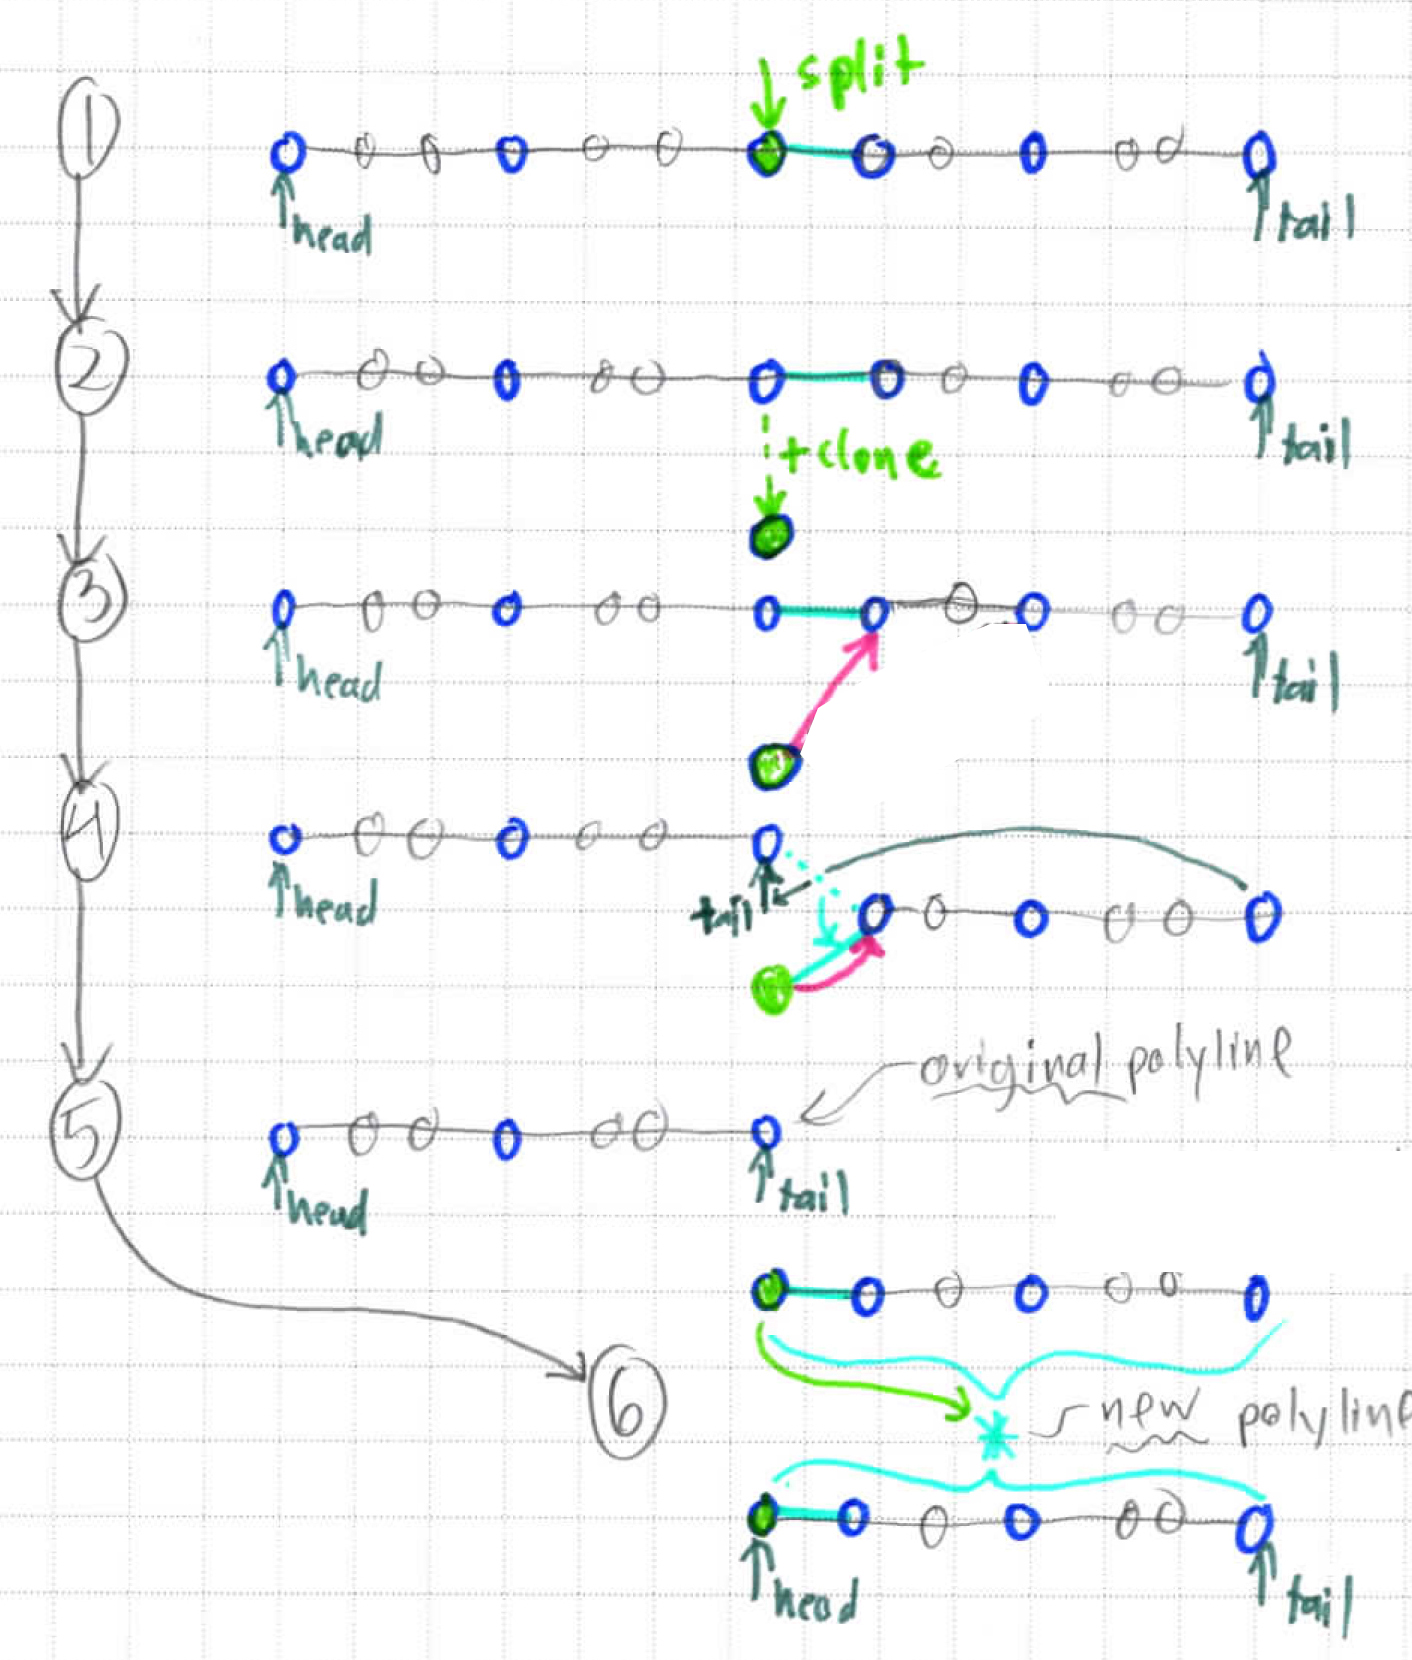 split
1
head
tail
2
head
tail
+clone
3
head
tail
4
head
tail
original polyline
5
head
tail
6
new polyline
head
tail